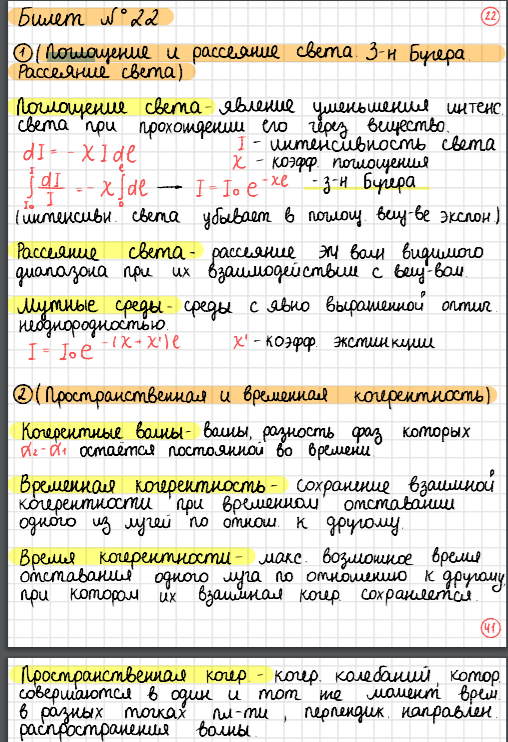 Билет N°22
22
① (Поглощение и рассеяние света. З-н Бугера.
Рассеяние света)
Поглощение света - явление уменьшения интенс.
света при прохождении его через вещество.
dI = - χ I dl
I - интенсивность света
χ - коэфф. поглощения
∫_{I₀}^{I} dI/I = - χ ∫_{0}^{l} dl → I = I₀ e^{-χl} - з-н Бугера
(интенсивн. света убывает в поглощ. вещ-ве экспон)
Рассеяние света - рассеяние ЭМ волн видимого
диапазона при их взаимодействие с вещ-вом.
Мутные среды - среды с явно выраженной оптич.
неоднородностью.
I = I₀ e^{-(χ + χ')l}
χ' - коэфф. экстинкции
② (Пространственная и временная когерентность)
Когерентные волны - волны, разность фаз которых
α₂-α₁ остаётся постоянной во времени
Временная когерентность - сохранение взаимной
когерентности при временном отставании
одного из лучей по отнош. к другому.
Время когерентности - макс. возможное время
отставания одного луча по отношению к другому,
при котором их взаимная когер. сохраняется.
41
Пространственная когер. - когер. колебаний, котор.
совершаются в один и тот же момент врем.
в разных точках пл-ти, перпендик. направлен.
распространения волны.